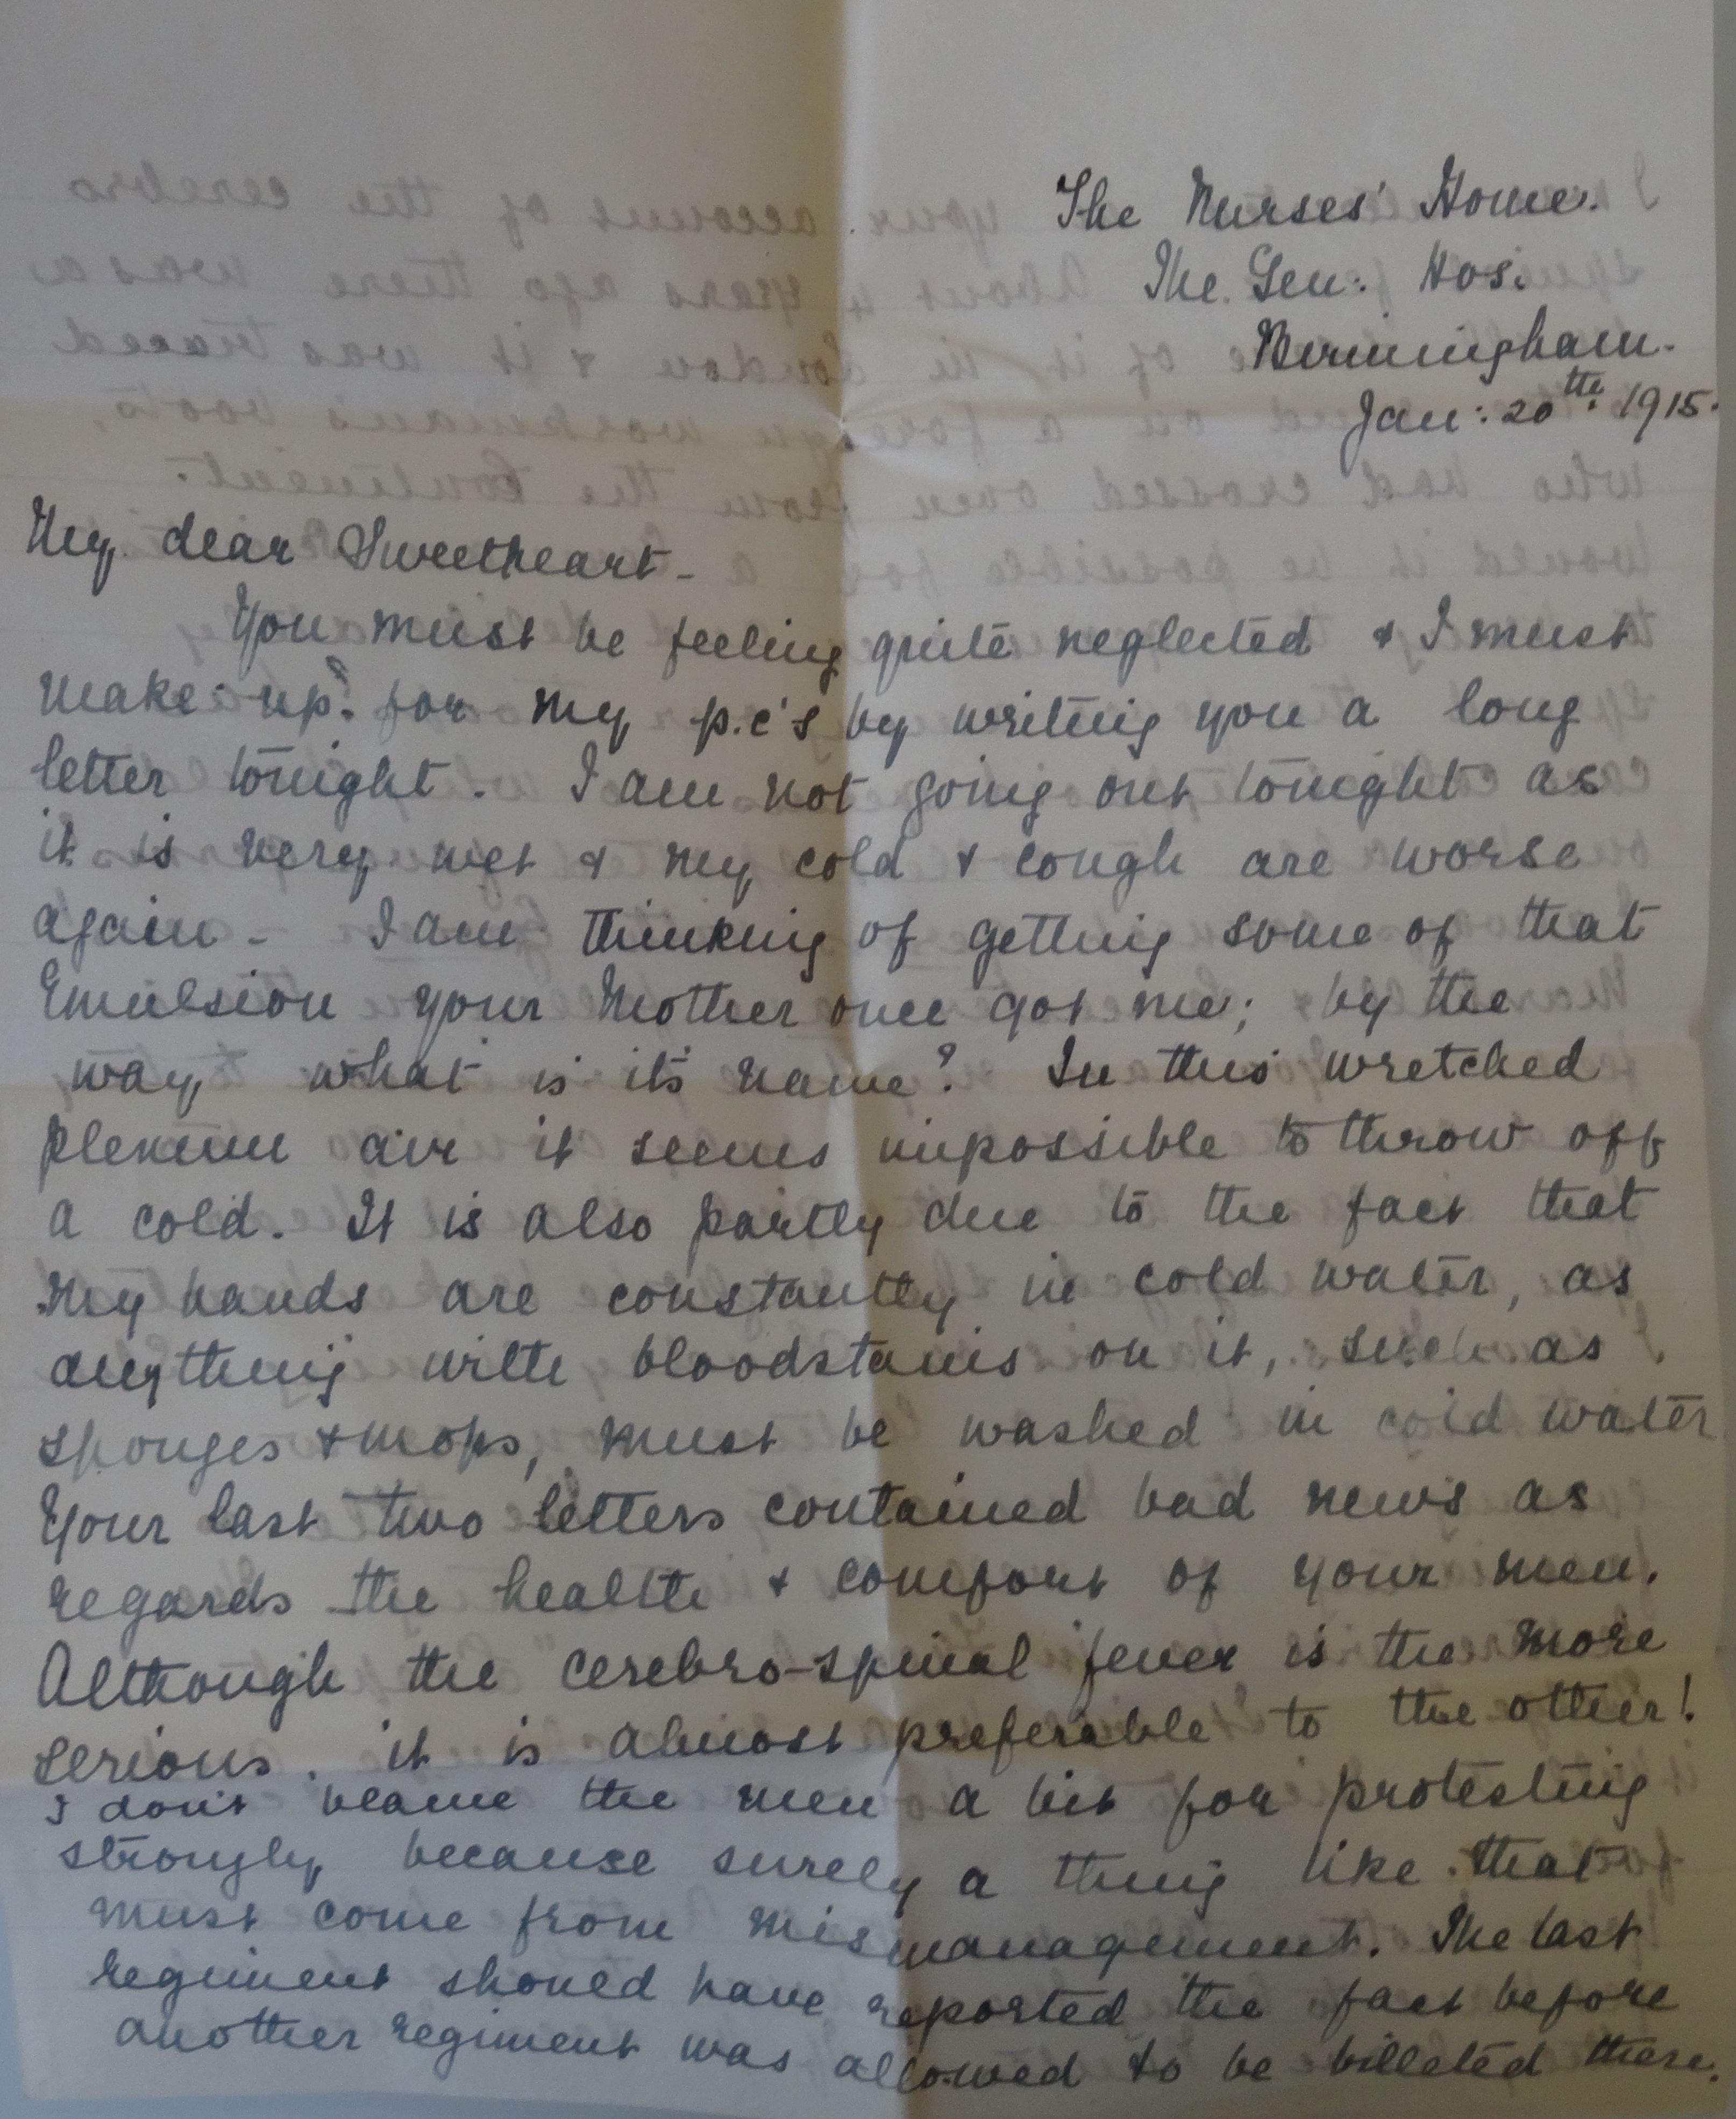 The Nurses' Home.
The. Gen: Hos:
Birmingham.
Jan: 20th 1915.
My dear Sweetheart -
You must be feeling quite neglected & I must
make up for my p.c's by writing you a long
letter tonight. I am not going out tonight as
it is very wet & my cold & cough are worse
again - I am thinking of getting some of that
Emulsion your Mother once got me; by the
way what is it's name? In this wretched
plenum air it seems impossible to throw off
a cold. It is also partly due to the fact that
my hands are constantly in cold water, as
anything with bloodstains on it, such as
sponges & mops, must be washed in cold water
Your last two letters contained bad news as
regards the health & comfort of your men.
Although the cerebro-spinal fever is the more
serious, it is almost preferable to the other!
I don't blame the men a bit for protesting
strongly, because surely a thing like that
must come from mismanagement. The last
regiment should have reported the fact before
another regiment was allowed to be billeted there.